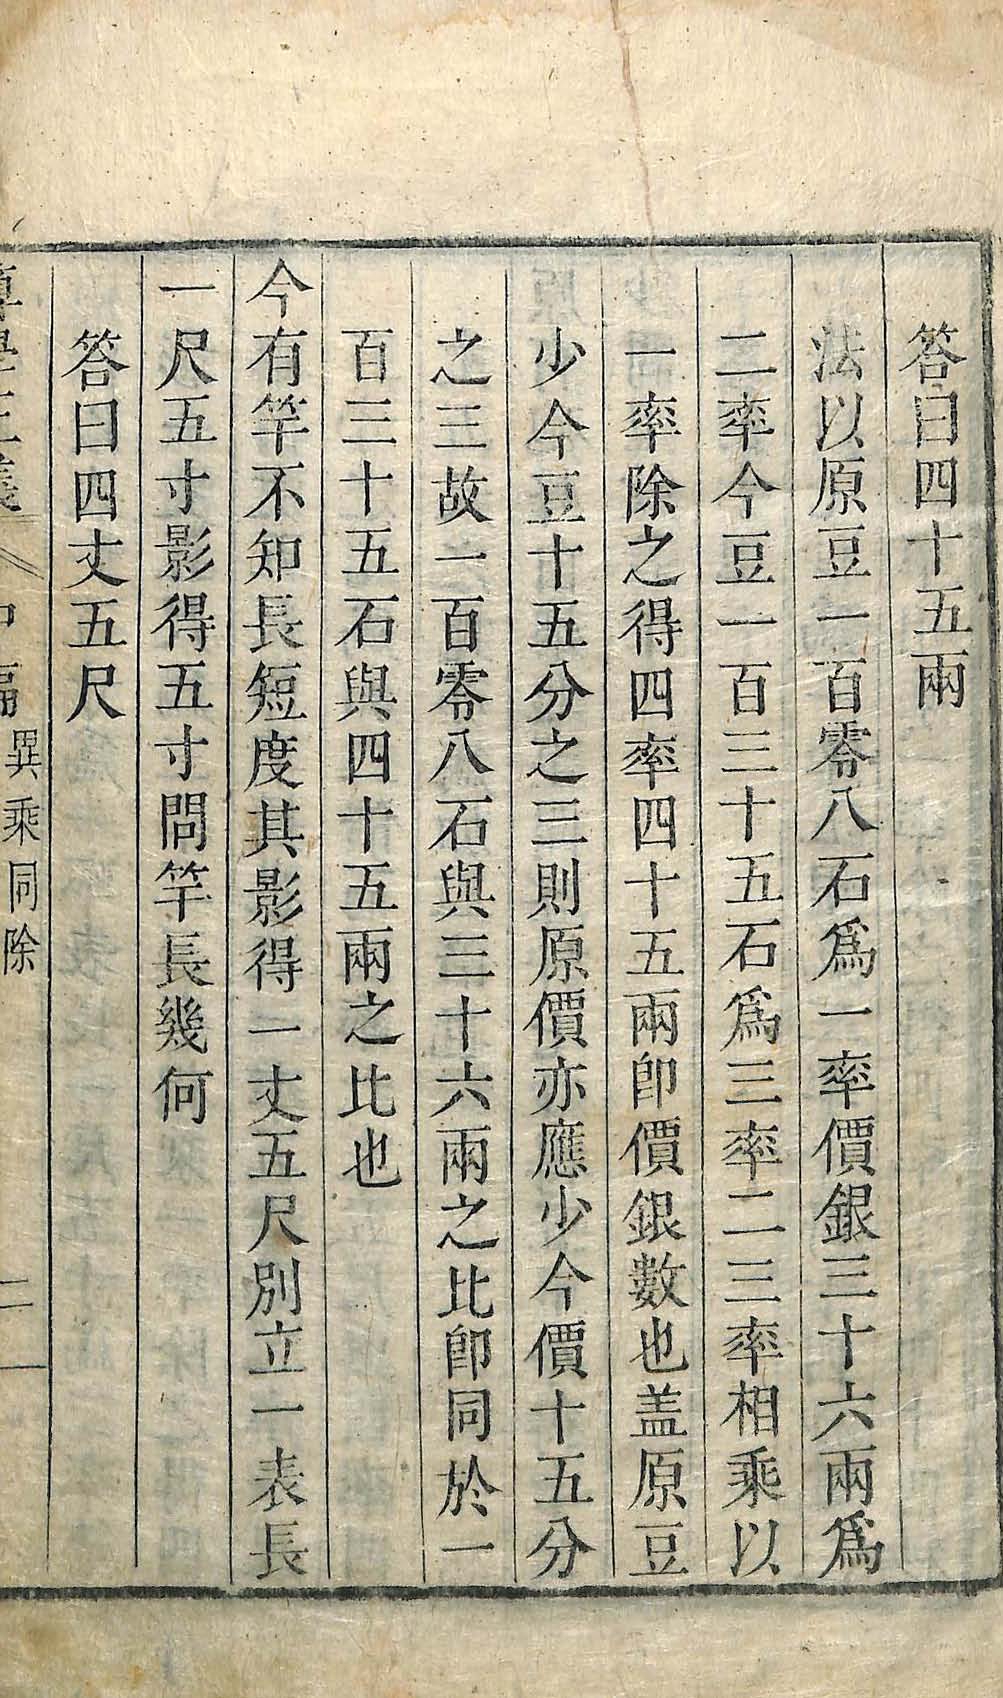 答曰四十五兩
法以原豆一百零八石爲一率價銀三十六兩爲
二率今豆一百三十五石爲三率二三率相乘以
一率除之得四率四十五兩卽價銀數也盖原豆
少今豆十五分之三則原價亦應少今價十五分
之三故一百零八石與三十六兩之比卽同於一
百三十五石與四十五兩之比也
今有竿不知長短度其影得一丈五尺別立一表長
一尺五寸影得五寸問竿長幾何
答曰四丈五尺
異乘同除
二